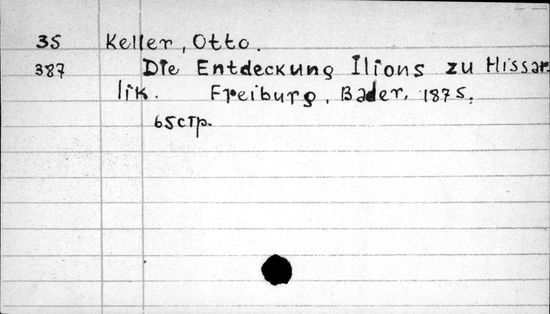 35 Keller, Otto.
387 Die Entdeckung Ilions zu Hissar
lik. Freiburg, Bader, 1875,
65стр.